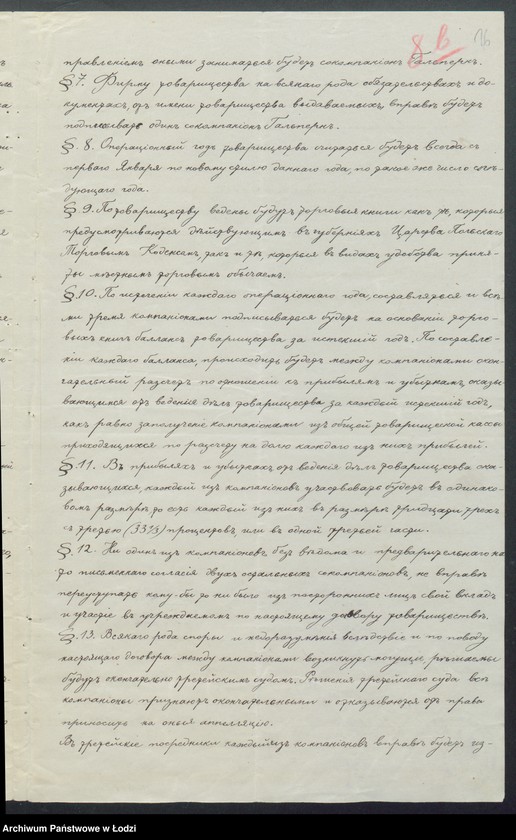 8 B 26
правленіемъ оными заниматься будетъ сокомпаніонъ Гальпернъ.
§ 7. Фирму товарищества на всякаго рода обязательствахъ и до-
кументахъ, отъ имени товарищества выдаваемыхъ, вправѣ будетъ
подписывать одинъ сокомпаніонъ Гальпернъ.
§. 8. Операціонный годъ товарищества считаться будетъ всегда съ
перваго Января по новому стилю даннаго года, по такое же число слѣ-
дующаго года.
§. 9. По товариществу ведены будутъ торговыя книги какъ тѣ, которыя
предусматриваются дѣйствующимъ въ губерніяхъ Царства Польскаго
Торговымъ Кодексомъ, такъ и тѣ, которыя въ видахъ удобства приня-
ты мѣстнымъ торговымъ обычаемъ.
§. 10. По истеченіи каждаго операціоннаго года, составляться и всѣ-
ми тремя компаніонами подписываться будетъ на основаніи торго-
выхъ книгъ балансъ товарищества за истекшій годъ. По составле-
ніи каждаго баланса, происходить будетъ между компаніонами окон-
чательный разсчетъ по отношенію къ прибылямъ и убыткамъ, оказы-
вающимся отъ веденія дѣлъ товарищества за каждый истекшій годъ,
какъ равно заполученіе компаніонами изъ общей товарищеской кассы
приходящихся по разсчету на долю каждаго изъ нихъ прибылей.
§. 11. Въ прибыляхъ и убыткахъ отъ веденія дѣлъ товарищества ока-
зывающихся каждый изъ компаніоновъ участвовать будетъ въ одинако-
вомъ размѣрѣ, то есть каждый изъ нихъ въ размѣрѣ тридцати трехъ
съ третью (33⅓) процентовъ, или въ одной третьей части.
§. 12. Ни одинъ изъ компаніоновъ, безъ вѣдома и предварительнаго на
то письменнаго согласія двухъ остальныхъ сокомпаніоновъ, не вправѣ
переуступать кому-бы то ни было изъ постороннихъ лицъ свой вкладъ
и участіе въ учреждаемомъ по настоящему договору товариществѣ.
§. 13. Всякаго рода споры и недоразумѣнія вслѣдствіе и по поводу
настоящаго договора между компаніонами возникнуть могущіе, рѣшаемы
будутъ окончательно третейскимъ судомъ. Рѣшенія третейскаго суда всѣ
компаніоны признаютъ окончательными и отказываются отъ права
приносить на оныя аппелляцію.
Въ третейскіе посредники каждый изъ компаніоновъ вправѣ будетъ из-
Archiwum Państwowe w Łodzi